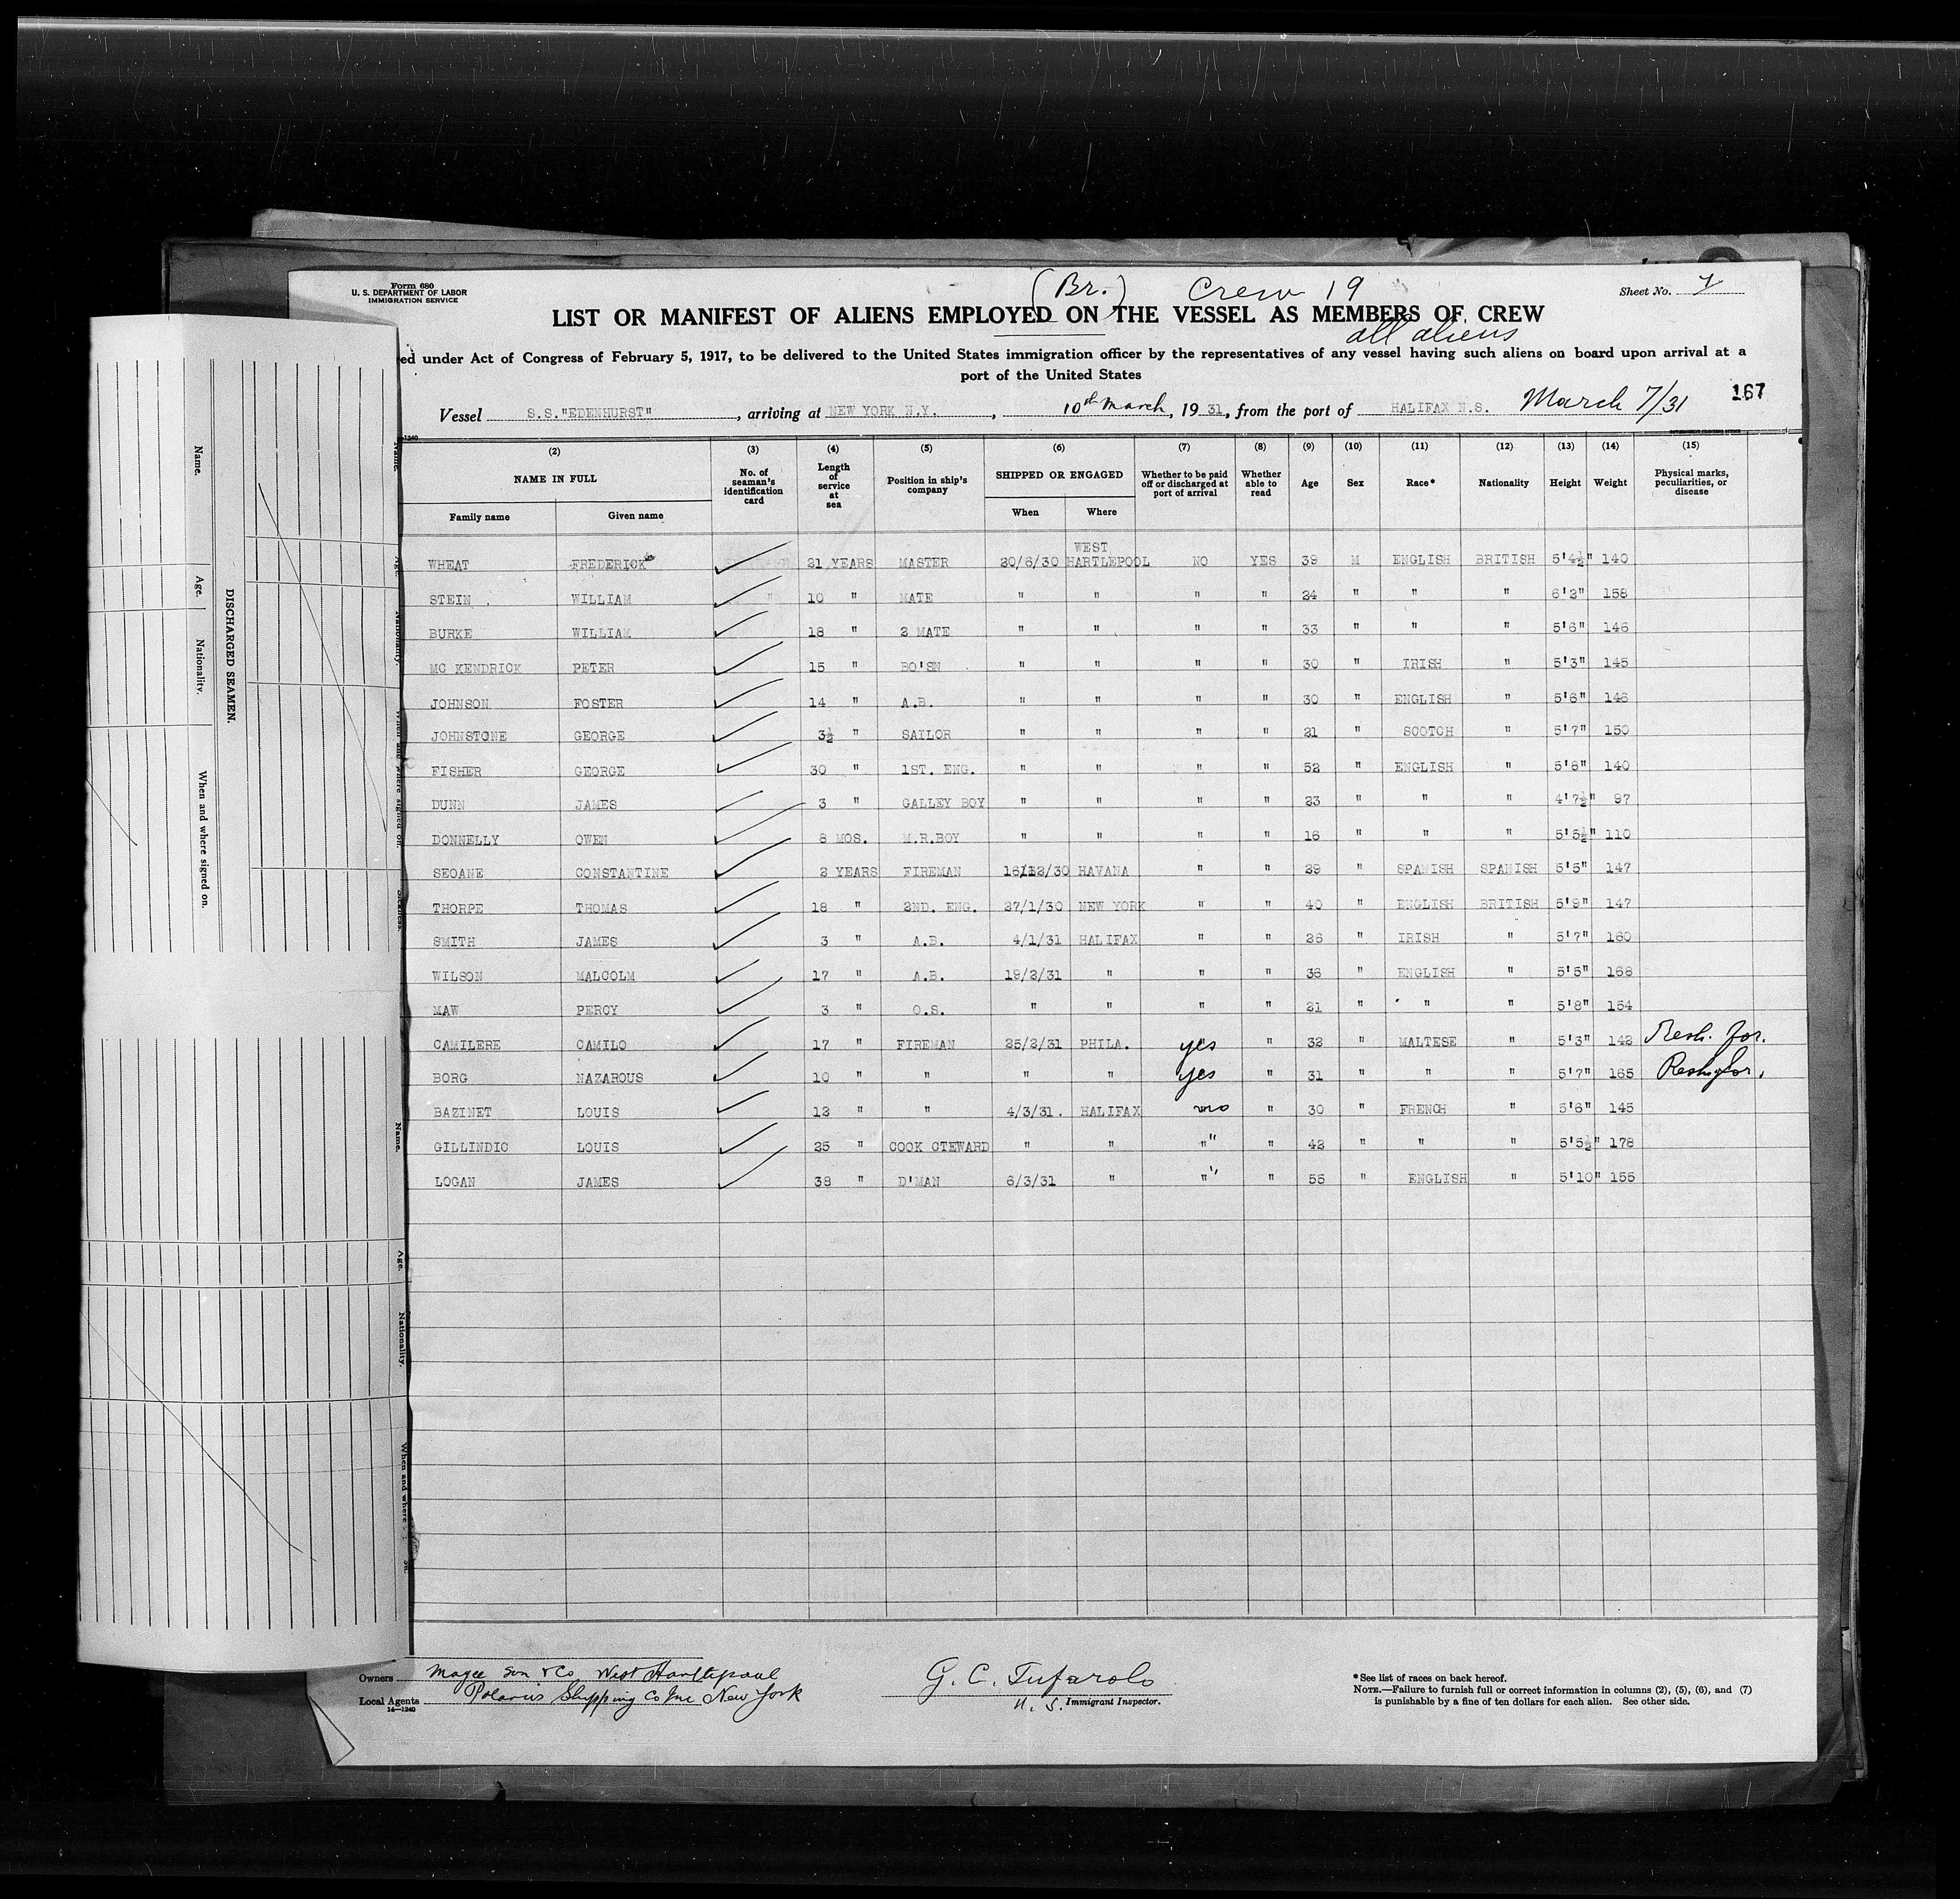 (Br.) Crew 19
Form 680
U. S. DEPARTMENT OF LABOR
IMMIGRATION SERVICE
Sheet No.
LIST OR MANIFEST OF ALIENS EMPLOYED ON THE VESSEL AS MEMBERS OF CREW
all aliens
ed under Act of Congress of February 5, 1917, to be delivered to the United States immigration officer by the representatives of any vessel having such aliens on board upon arrival at a
port of the United States
167
Vessel S.S."EDENHURST", arriving at NEW YORK N.Y., 10th March, 19 31, from the port of HALIFAX N.S. March 7/31
(2) (3) (4) (5) (6) (7) (8) (9) (10) (11) (12) (13) (14) (15)
NAME IN FULL
Family name Given name
No. of seaman's identification card
Length of service at sea
Position in ship's company
SHIPPED OR ENGAGED
When Where
Whether to be paid off or discharged at port of arrival
Whether able to read
Age Sex Race* Nationality Height Weight
Physical marks, peculiarities, or disease
WHEAT FREDERICK 21 YEARS MASTER 20/6/30 WEST HARTLEPOOL NO YES 39 M ENGLISH BRITISH 5'4½" 140
STEIN WILLIAM 10 " MATE " " " " 24 " " " 6'2" 158
BURKE WILLIAM 18 " 2 MATE " " " " 33 " " " 5'6" 146
MC KENDRICK PETER 15 " BO'SN " " " " 30 " IRISH " 5'3" 145
JOHNSON FOSTER 14 " A.B. " " " " 30 " ENGLISH " 5'6" 146
JOHNSTONE GEORGE 3½ " SAILOR " " " " 21 " SCOTCH " 5'7" 150
FISHER GEORGE 30 " 1ST. ENG. " " " " 52 " ENGLISH " 5'8" 140
DUNN JAMES 3 " GALLEY BOY " " " " 23 " " " 4'7½" 97
DONNELLY OWEN 8 MOS. M.R.BOY " " " " 16 " " " 5'5½" 110
SEOANE CONSTANTINE 2 YEARS FIREMAN 16/12/30 HAVANA " " 29 " SPANISH SPANISH 5'5" 147
THORPE THOMAS 18 " 2ND. ENG. 27/1/30 NEW YORK " " 40 " ENGLISH BRITISH 5'9" 147
SMITH JAMES 3 " A.B. 4/1/31 HALIFAX " " 26 " IRISH " 5'7" 160
WILSON MALCOLM 17 " A.B. 19/2/31 " " " 36 " ENGLISH " 5'5" 168
MAW PERCY 3 " O.S. " " " " 21 " " " 5'8" 154
CAMILERE CAMILO 17 " FIREMAN 25/2/31 PHILA. yes " 32 " MALTESE " 5'3" 142 Resh. for.
BORG NAZAROUS 10 " " " " yes " 31 " " " 5'7" 165 Resh. for.
BAZINET LOUIS 12 " " 4/3/31. HALIFAX no " 30 " FRENCH " 5'6" 145
GILLINDIC LOUIS 25 " COOK CTEWARD " " " " 42 " " " 5'5½" 178
LOGAN JAMES 38 " D'MAN 6/3/31 " " " 55 " ENGLISH " 5'10" 155
Name.
Age.
Nationality.
When and where signed on.
DISCHARGED SEAMEN.
Name.
Age.
Nationality.
Owners Magee Son & Co West Hartlepool
Local Agents Polarus Shipping Co Inc New York
14—1240
G. C. Tufarolo
U. S. Immigrant Inspector.
*See list of races on back hereof.
NOTE.—Failure to furnish full or correct information in columns (2), (5), (6), and (7)
is punishable by a fine of ten dollars for each alien. See other side.